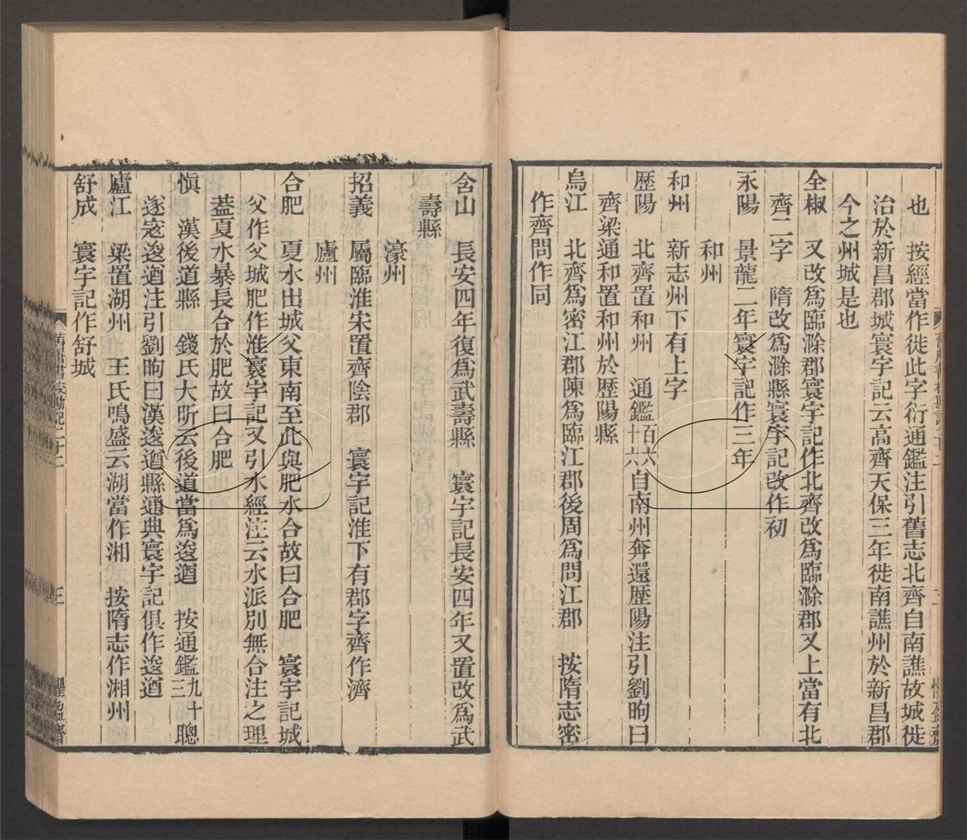 也　按經當作徙此字衍通鑑注引舊志北齊自南譙故城徙
治於新昌郡城寰宇記云高齊天保三年徙南譙州於新昌郡
今之州城是也
全椒　又改爲臨滁郡寰宇記作北齊改爲臨滁郡又上當有北
齊二字　隋改爲滁縣寰宇記改作初
永陽　景龍二年寰宇記作三年
和州
和州　新志州下有上字
歷陽　北齊置和州　通鑑百六十六自南州奔還歷陽注引劉昫曰
齊梁通和置和州於歷陽縣
烏江　北齊爲密江郡陳爲臨江郡後周爲問江郡　按隋志密
作齊問作同
含山　長安四年復爲武壽縣　寰宇記長安四年又置改爲武
壽縣
濠州
招義　屬臨淮宋置齊陰郡　寰宇記淮下有郡字齊作濟
廬州
合肥　夏水出城父東南至此與肥水合故曰合肥　寰宇記城
父作父城肥作淮寰宇記又引水經注云水派別無合注之理
葢夏水暴長合於肥故曰合肥
愼　漢後道縣　錢氏大昕云後道當爲逡遒　按通鑑九十三聰
遂寇逡遒注引劉昫曰漢逡遒縣通典寰宇記俱作逡遒
廬江　梁置湖州　王氏鳴盛云湖當作湘　按隋志作湘州
舒成　寰宇記作舒城
舊唐書校勘記二十二
三
懼盈齋